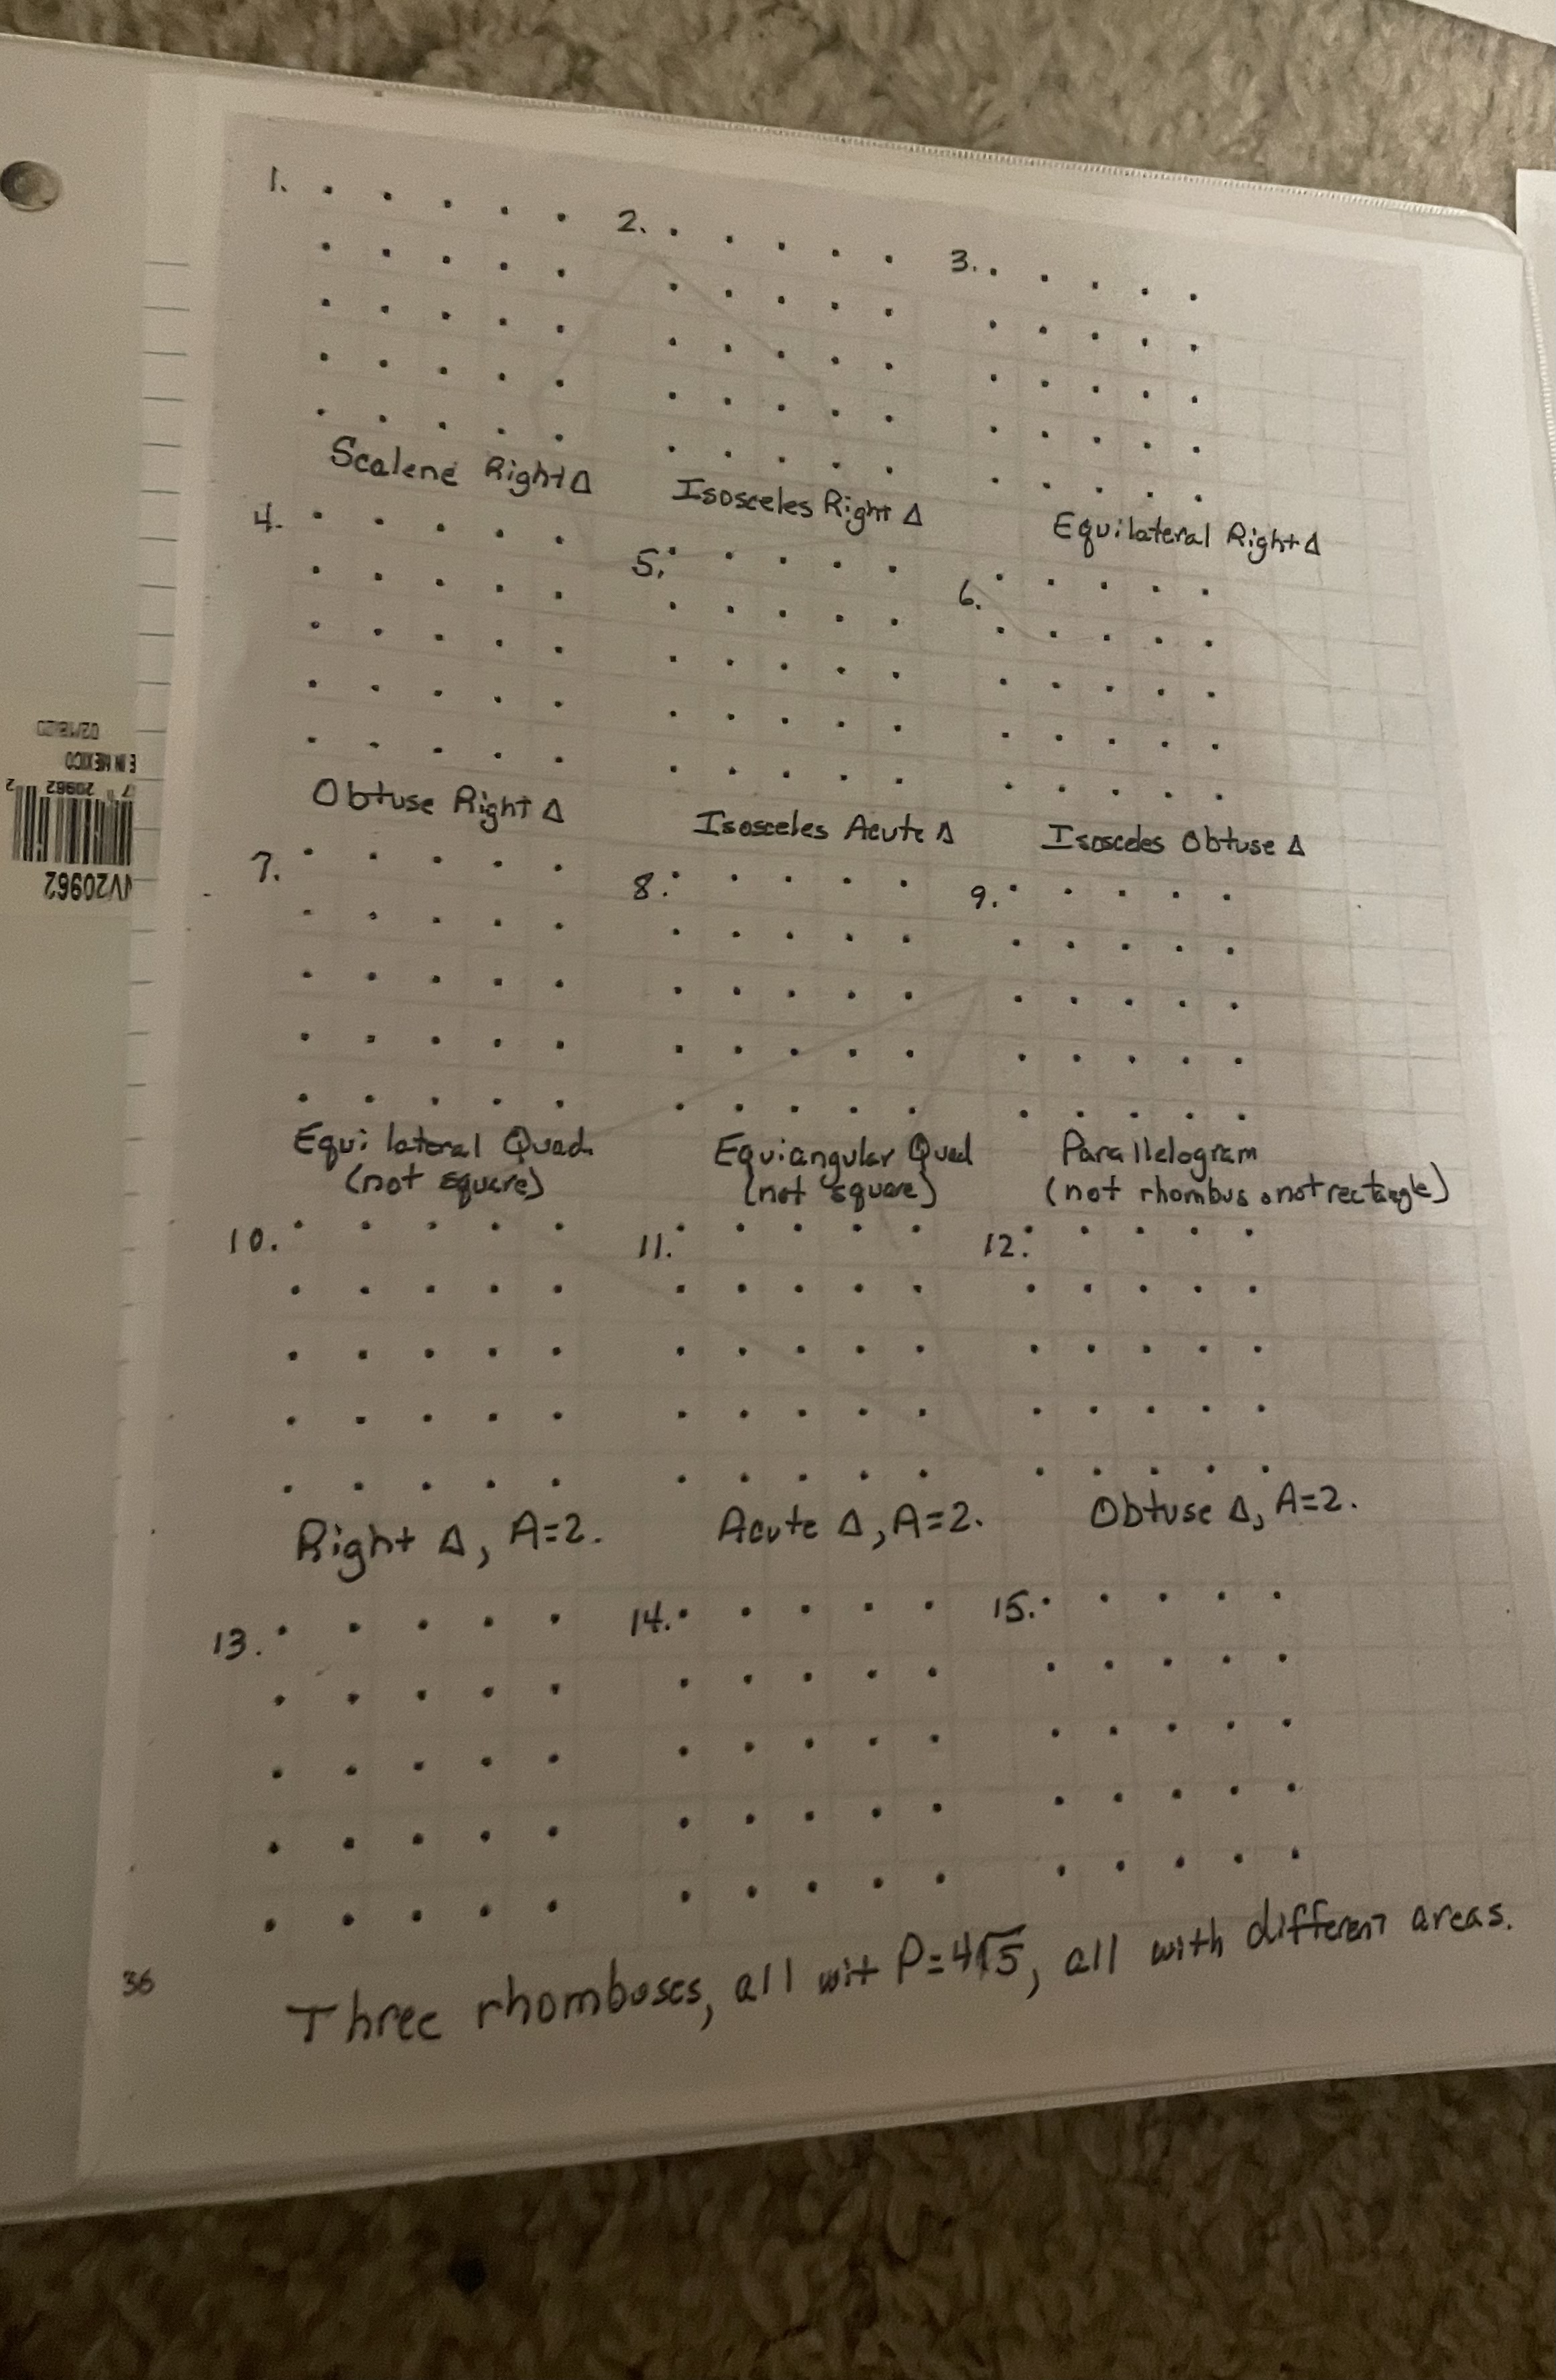 1.
2.
3.
Scalene Right Δ
Isosceles Right Δ
Equilateral Right Δ
4.
5.
6.
Obtuse Right Δ
Isosceles Acute Δ
Isosceles Obtuse Δ
7.
8.
9.
Equilateral Quad.
(not square)
Equiangular Quad
(not square)
Parallelogram
(not rhombus, not rectangle)
10.
11.
12.
Right Δ, A=2.
Acute Δ, A=2.
Obtuse Δ, A=2.
13.
14.
15.
Three rhombuses, all wit P=4√5, all with different areas.
36
02/18/20
E IN MEXICO
7 20962 2
NV20962